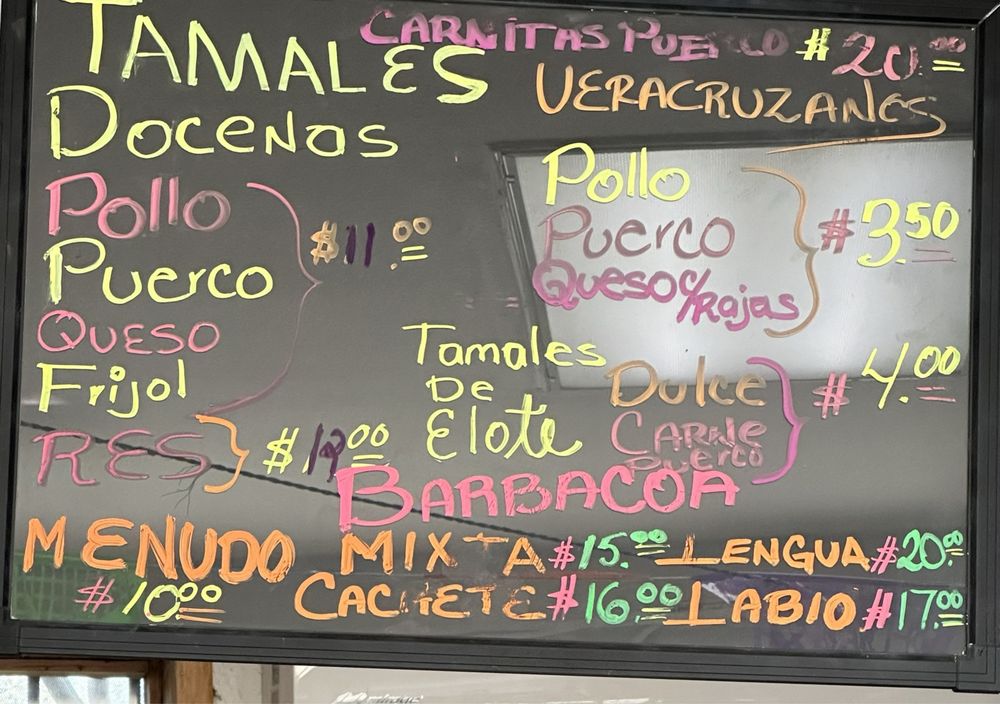 TAMALES
DOCENAS
POllO
PUERCO
QUESO
FRIJOl
$11.00
RES $12.00
CARNITAS PUERCO $20.00
VERACRUZANES
POllO
PUERCO
QUESO C/Rajas
$3.50
Tamales
De
Elote
Dulce
CARNE
PUERCO
$4.00
BARBACOA
MENUDO
$10.00
MIXTA $15.00 LENGUA $20.00
CACHETE $16.00 LABIO $17.00